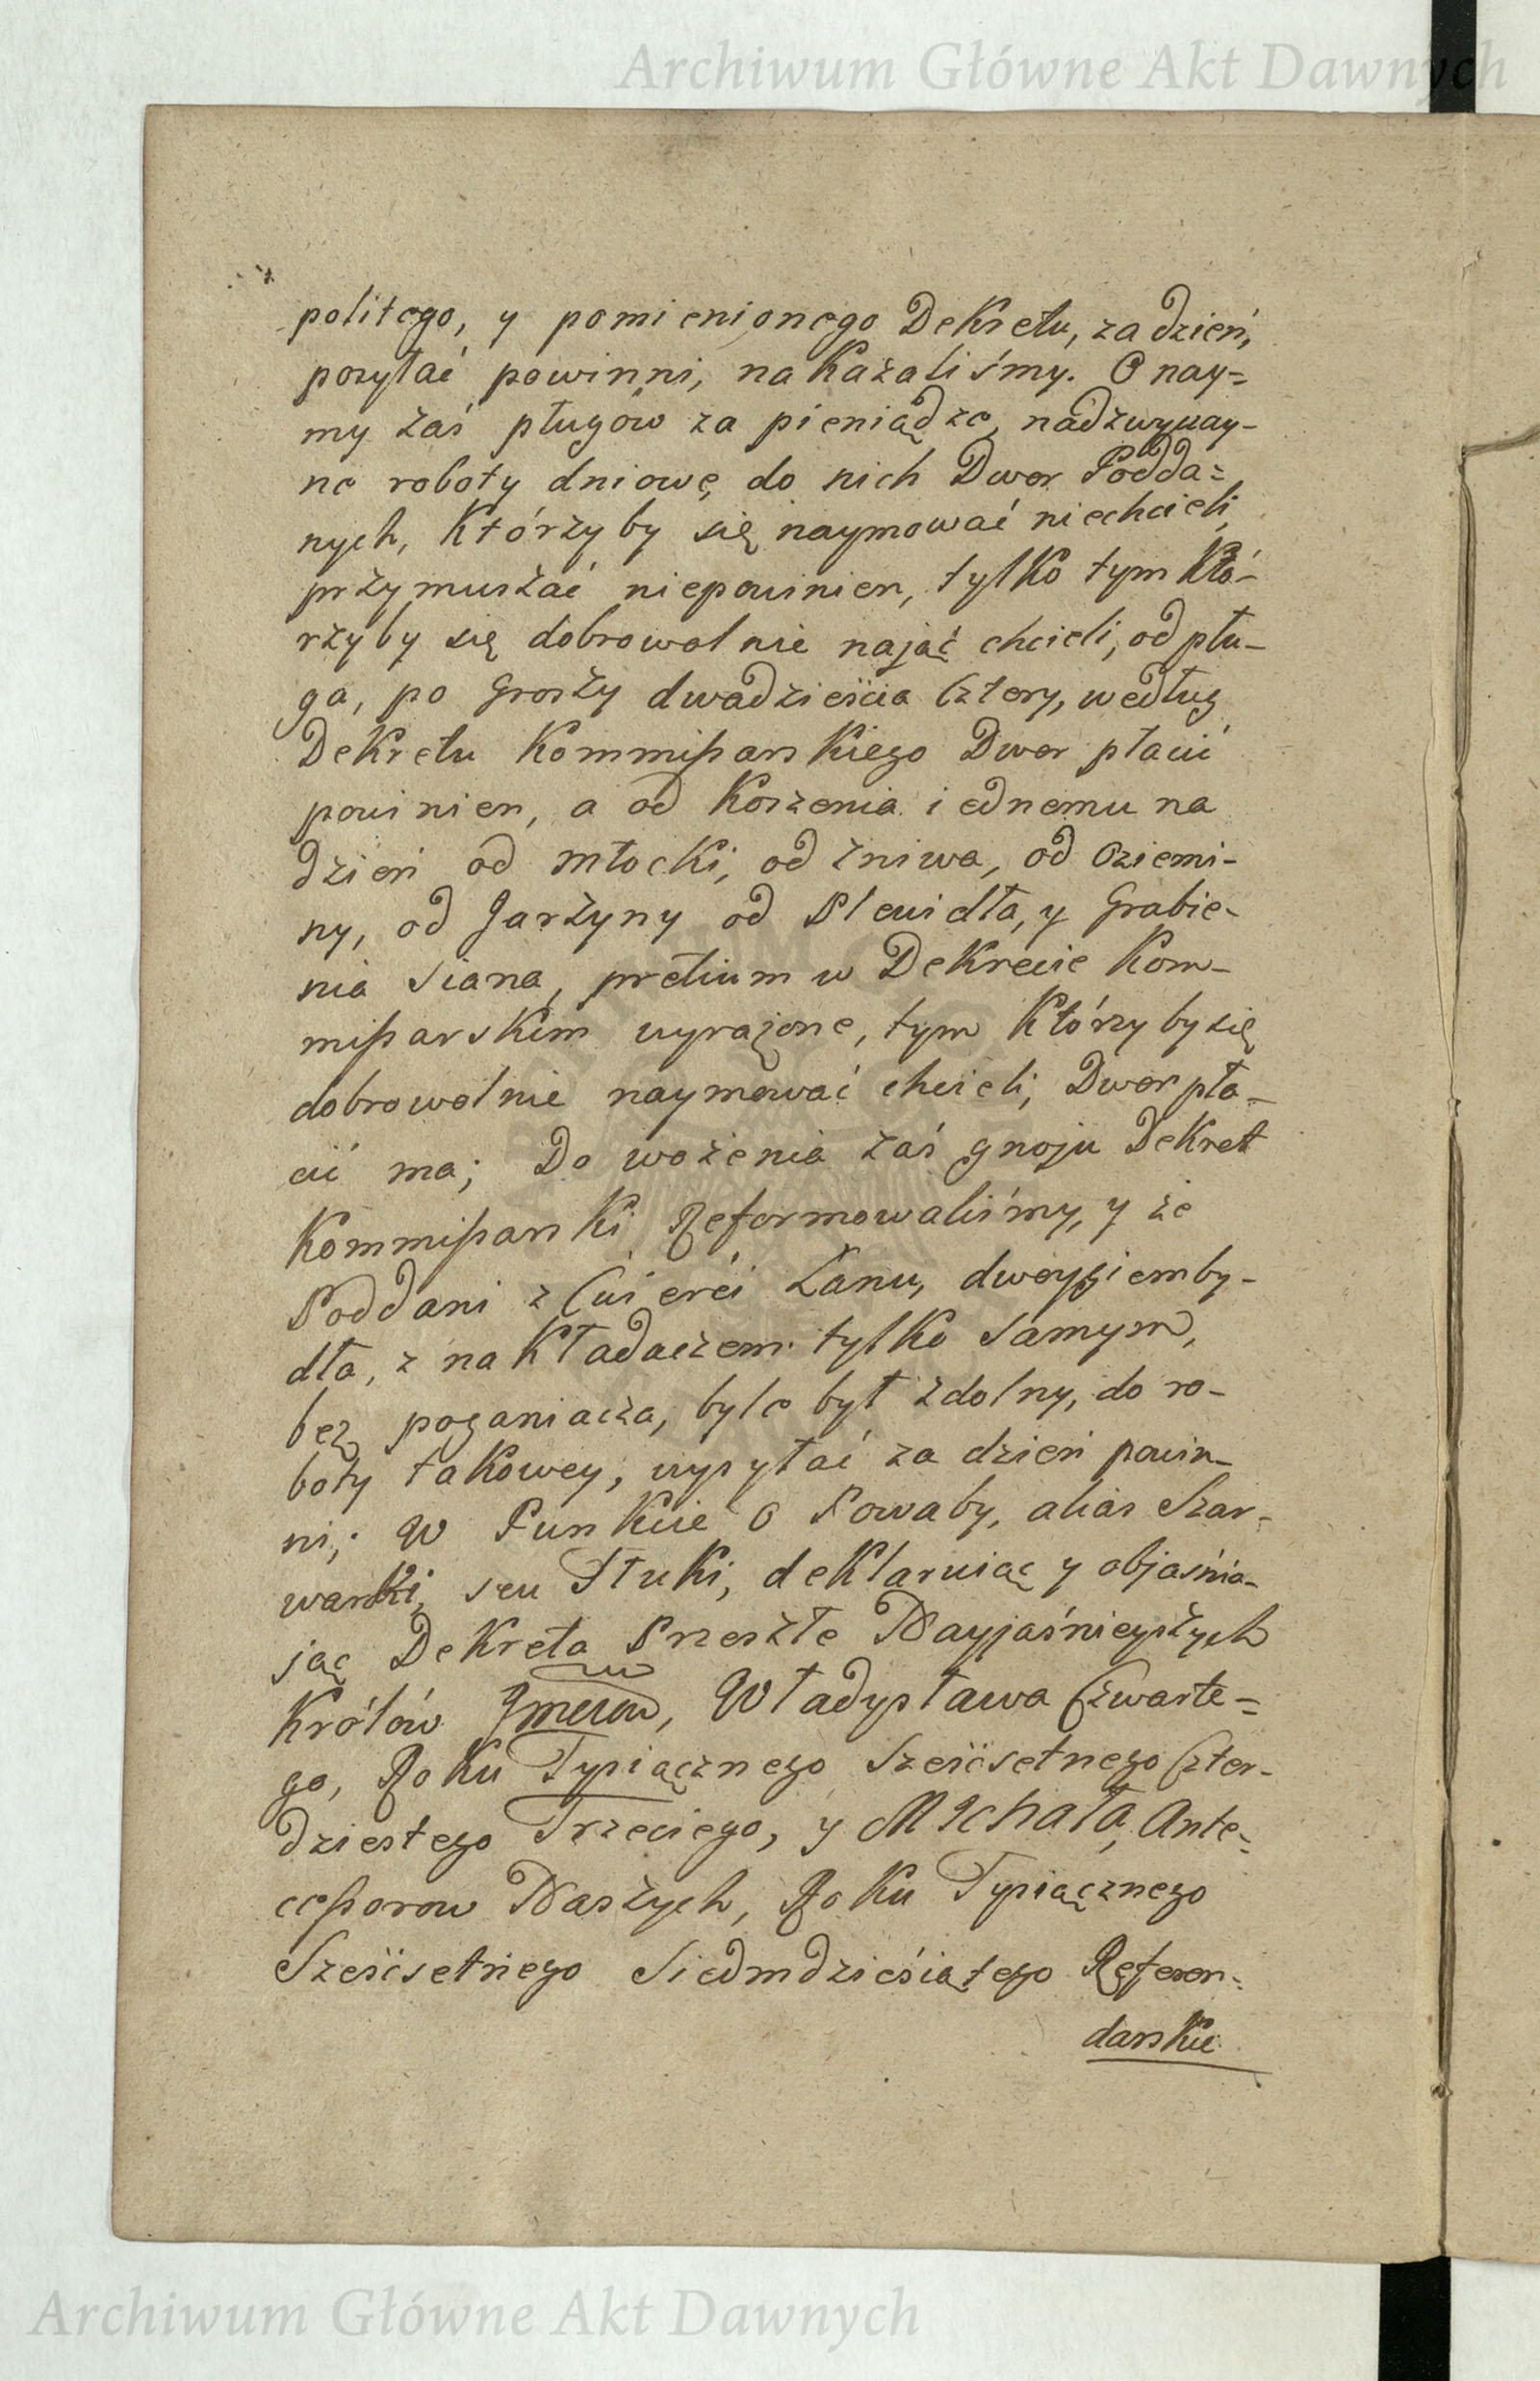 Archiwum Główne Akt Dawnych
politego, y pomienionego Dekretu, za dzień,
posyłać powinni, nakazaliśmy. O nay=
my zaś pługów za pieniądze, nadzwyczay-
ne roboty dniowe, do nich Dwor Podda=
nych, którzyby się naymować niechcieli,
przymuszać niepowinien, tylko tym Któ-
rzyby się dobrowolnie nająć chcieli, od płu-
ga, po Groszy dwadzieścia Cztery, według
Dekretu Kommissarskiego Dwor płacić
powinien, a od Koszenia iednemu na
dzień od Młocki, od żniwa, od Oziemi-
ny, od Jarzyny od Plewidła, y Grabie-
nia siana, pretium w Dekrecie Kom-
missarskim wyrażone, tym Którzyby się
dobrowolnie naymować chcieli, Dwor pła-
cić ma; Do wożenia zaś gnoju Dekret
Kommissarski Reformowaliśmy, y że
Poddani z Cwierci Łanu, dwoygiem by-
dła, z nakładaczem tylko samym,
bez poganiacza, byle był zdolny, do ro-
boty takowey, wysyłać za dzień powin-
ni; W Punkcie O Powaby, alias Szar-
warki, seu Tłuki, deklaruiąc y objaśnia-
jąc Dekreta Przeszłe Nayjaśnieyszych
Królów Władysława Czwarte=
go, Roku Tysiącznego Sześćsetnego Czter-
dziestego Trzeciego, y Michała, Ante-
cessorow Naszych, Roku Tysiącznego
Sześćsetnego Siedmdziesiątego Referen-
darskie
Archiwum Główne Akt Dawnych